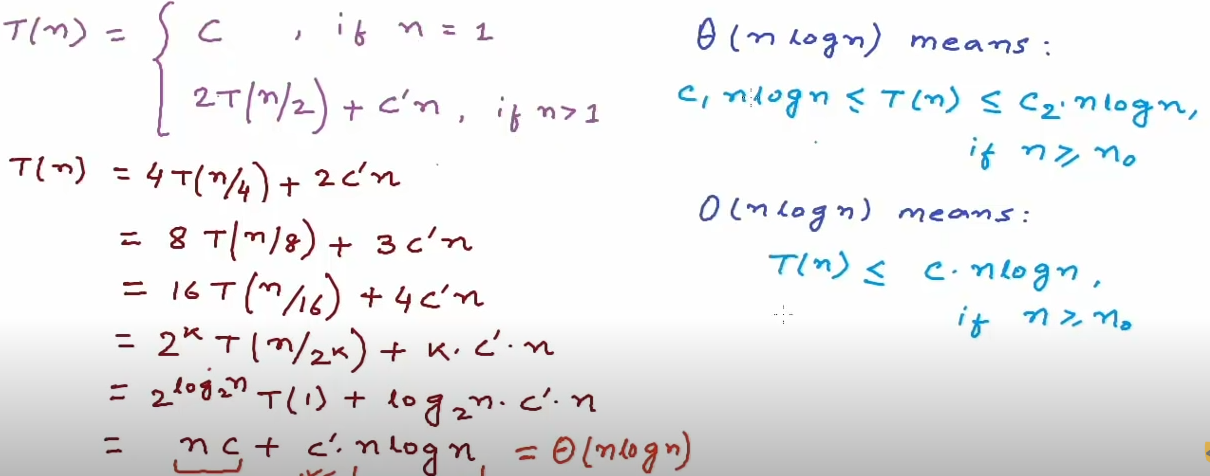 T(n) = { C , if n = 1
2T(n/2) + c'n, if n>1
T(n) = 4T(n/4) + 2c'n
= 8 T(n/8) + 3c'n
= 16 T(n/16) + 4c'n
= 2^K T(n/2^K) + K. c'. n
= 2^log₂n T(1) + log₂n. c'. n
= nc + c'. n logn = Θ(nlogn)
Θ(n logn) means:
C₁ n logn ≤ T(n) ≤ C₂. n logn,
if n ≥ n₀
O(n logn) means:
T(n) ≤ c. n logn,
if n ≥ n₀